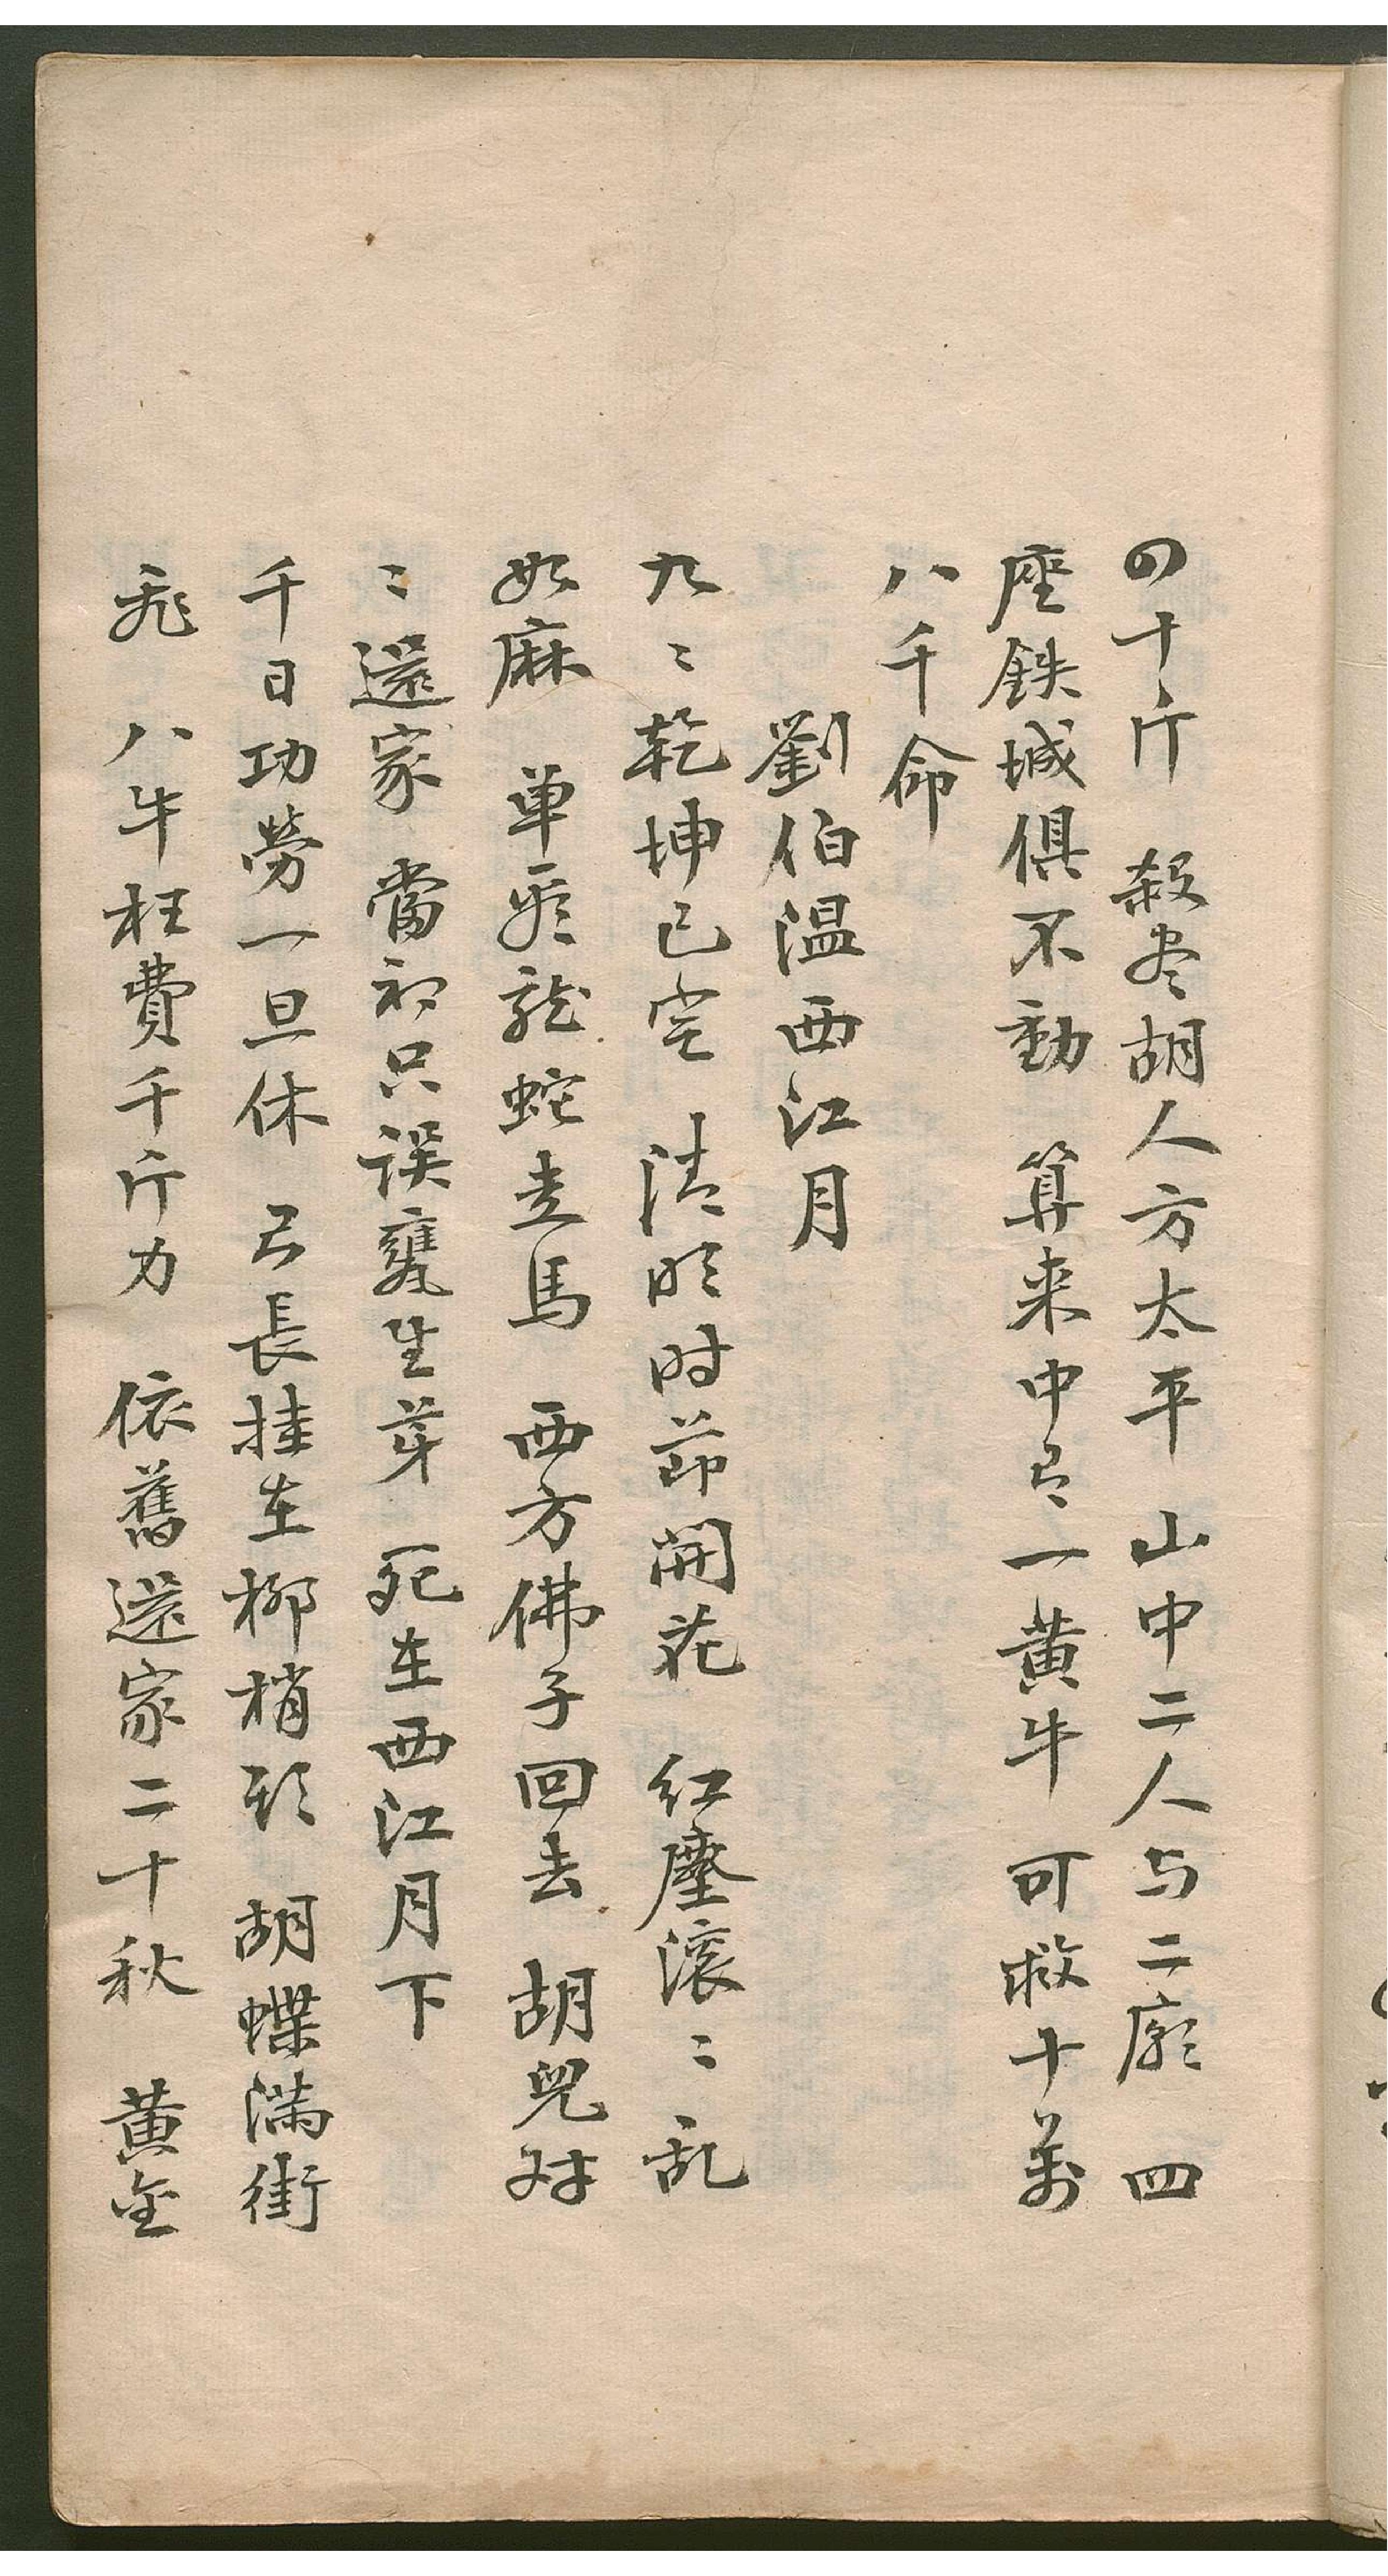 四十斤 殺尽胡人方太平 山中二人与二 四
座鉄城俱不動 算来中 一黄牛 可救十萬
八千命
劉伯温西江月
九〻乾坤已定 清明时節開花 红塵滚〻乱
如麻 单 龍蛇走馬 西方佛子回去 胡兒对
〻還家 當初只誤甕生芽 死在西江月下
千日功勞一旦休 弓長挂在柳梢头 胡蝶满街
飛 八牛枉費千斤力 依舊還家二十秋 黄金